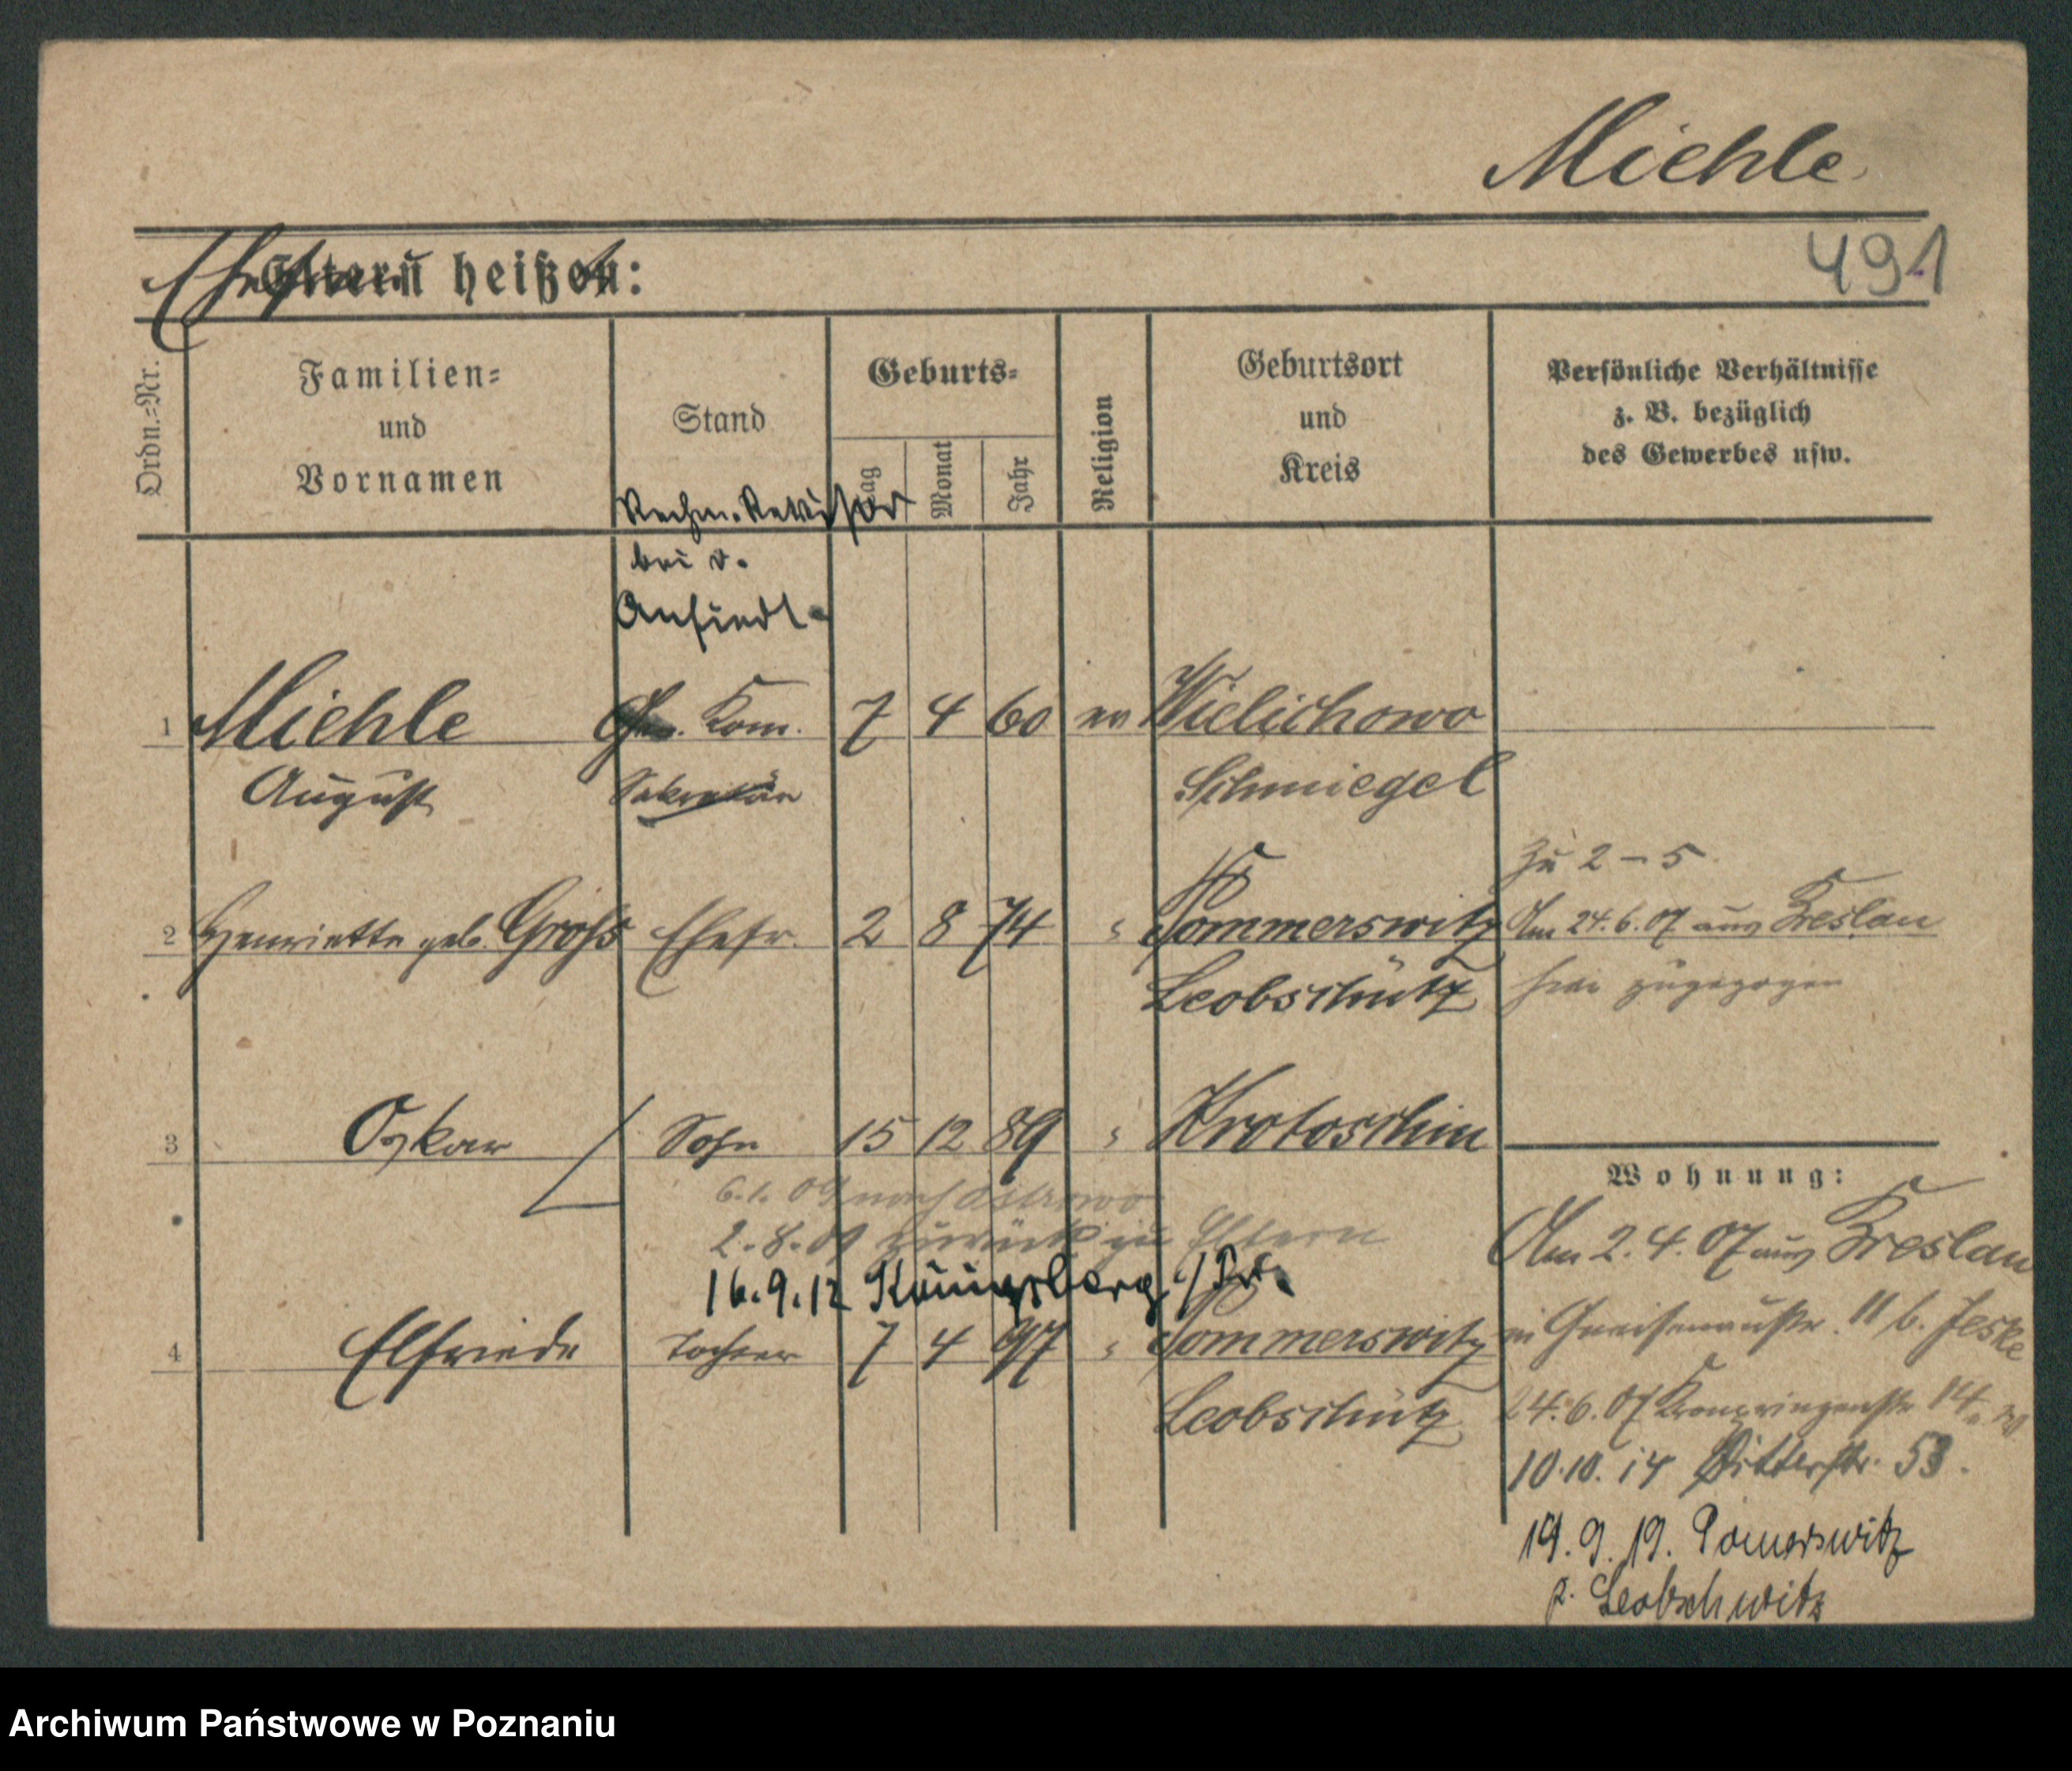 Miehle
491
Eltern heißen:
Ordn.=Nr.
Familien=
und
Vornamen
Stand
Geburts=
Tag
Monat
Jahr
Religion
Geburtsort
und
Kreis
Persönliche Verhältnisse
z. B. bezüglich
des Gewerbes usw.
Rechn. Revisor
bei d.
Ansiedl-
1 Miehle Kom. 7 4 60 ev Wielichowo
August Sekretär Schmiegel
Zu 2 – 5
2 Henriette geb. Groß Ehefr. 2 8 74 " Pommerswitz Am 24.6.07 aus Breslau
Leobschütz hier zugezogen
3 Oskar Sohn 15 12 89 " Krotoschin
6.1.09 nach Ostrowo
2.8.09 zurück zu Eltern
16.9.12 Königsberg i/Pr.
4 Elfriede Tochter 7 4 97 " Pommerswitz
Leobschütz
Wohnung:
Am 2.4.07 aus Breslau
in Gneisenaustr. 11 b. Jeske
24.6.07 Kronprinzenstr. 14
10.10.14 Ritterstr. 53.
19.9.19. Pomerswitz
Leobschwitz
Archiwum Państwowe w Poznaniu